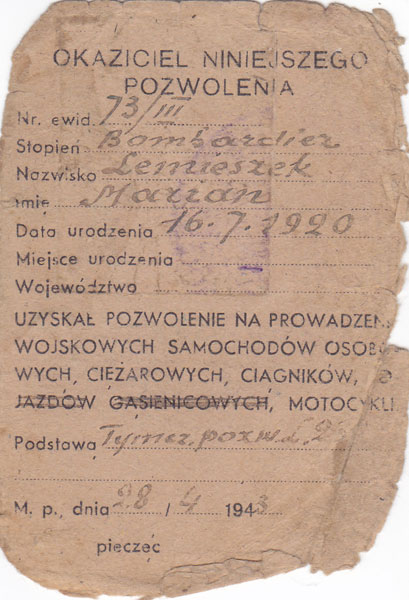 OKAZICIEL NINIEJSZEGO
POZWOLENIA
Nr. ewid. 73/III
Stopień Bombardier
Nazwisko Lemieszek
Imię Marian
Data urodzenia 16.7.1920
Miejsce urodzenia
Województwo
UZYSKAŁ POZWOLENIE NA PROWADZEN
WOJSKOWYCH SAMOCHODÓW OSOBO-
WYCH, CIEŻAROWYCH, CIAGNIKÓW,
JAZDÓW GĄSIENICOWYCH, MOTOCYKLI
Podstawa Tymcz. pozw. L. 23
M. p., dnia 28 / 4 1943
pieczęć